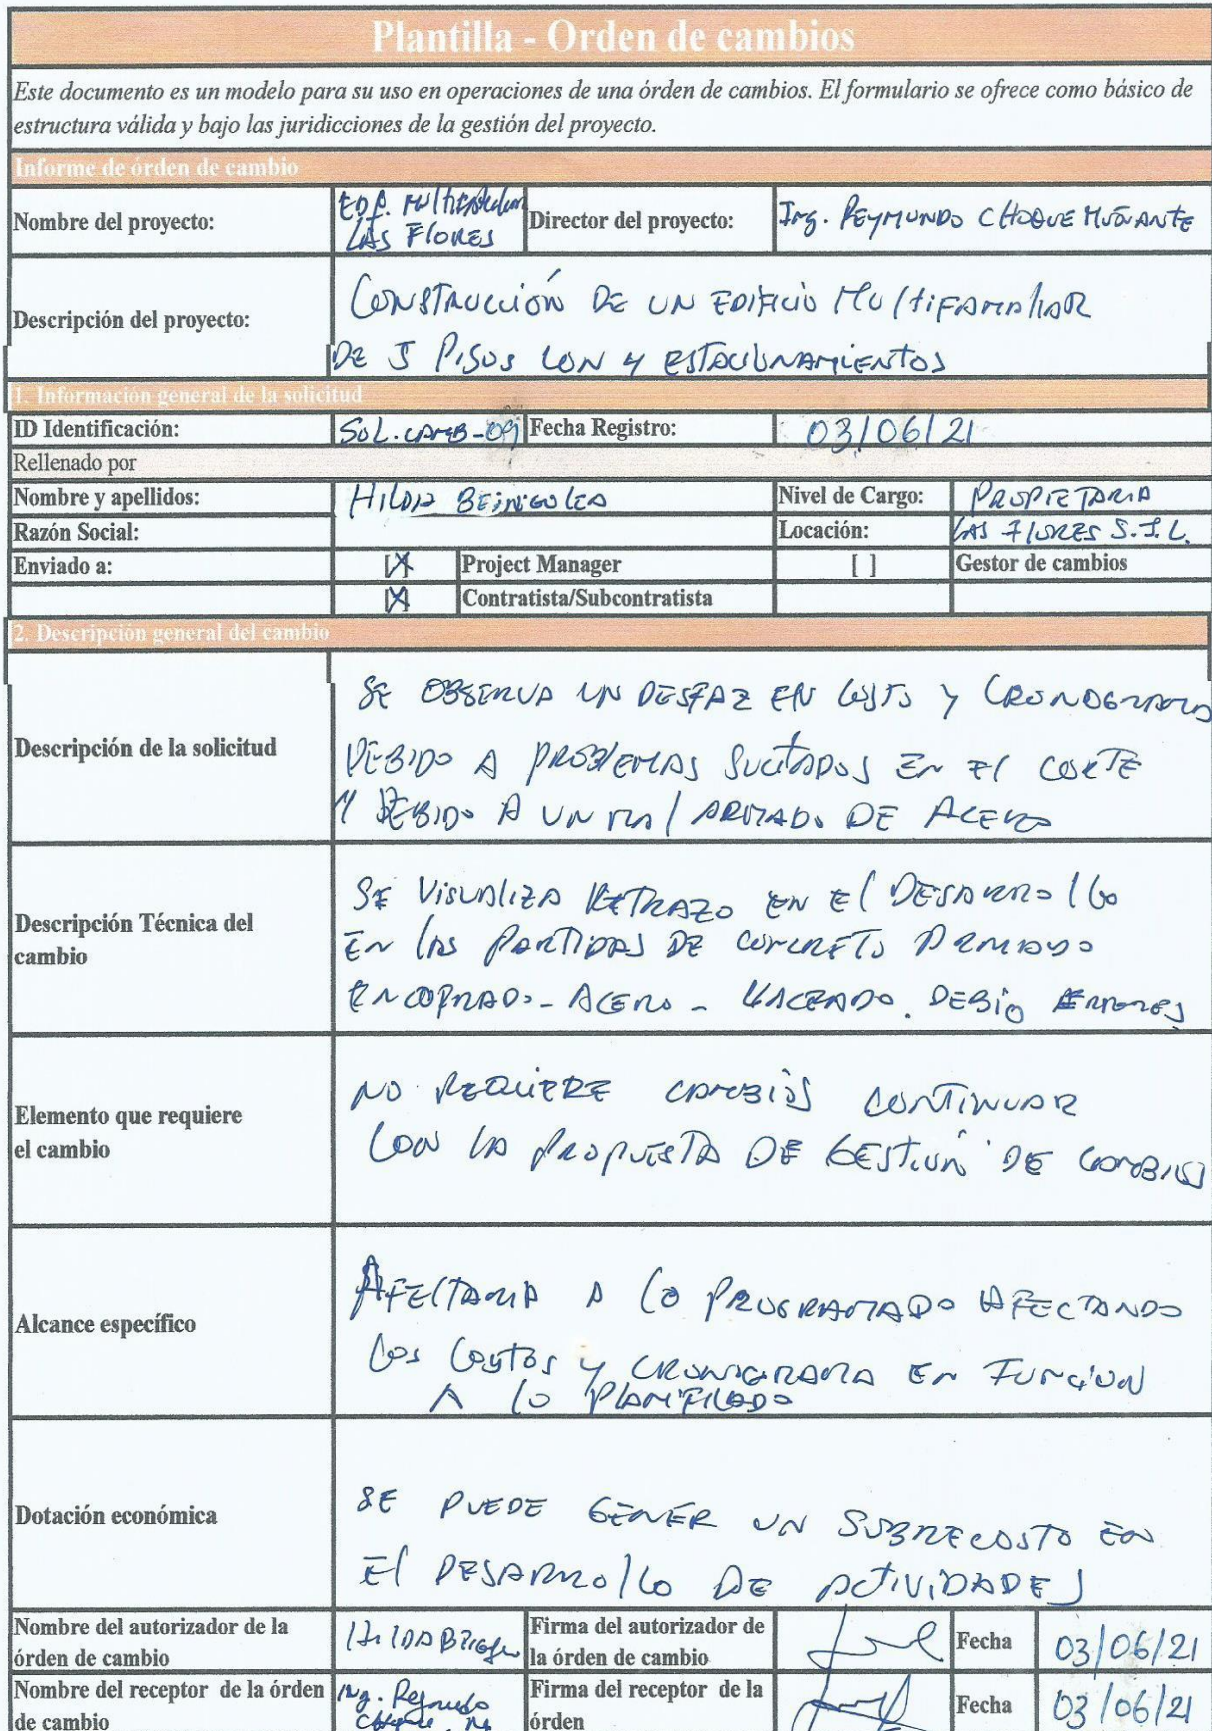 Plantilla - Orden de cambios
Este documento es un modelo para su uso en operaciones de una órden de cambios. El formulario se ofrece como básico de
estructura válida y bajo las juridicciones de la gestión del proyecto.
Informe de órden de cambio
Nombre del proyecto:
LAS FLORES
Director del proyecto:
Ing. REYMUNDO CHOQUE MUÑANTE
Descripción del proyecto:
CONSTRUCCIÓN DE UN EDIFICIO MULTIFAMILIAR
DE 5 PISOS CON 4 ESTACIONAMIENTOS
1. Información general de la solicitud
ID Identificación:
SOL.CAMB-09
Fecha Registro:
03/06/21
Rellenado por
Nombre y apellidos:
HILDA BEINGOLEA
Nivel de Cargo:
PROPIETARIA
Razón Social:
Locación:
LAS FLORES S.J.L.
Enviado a:
[X]
Project Manager
[ ]
Gestor de cambios
[X]
Contratista/Subcontratista
2. Descripción general del cambio
Descripción de la solicitud
SE OBSERVA UN DESFAZ EN COSTO Y CRONOGRAMA
DEBIDO A PROBLEMAS SUCITADOS EN EL CORTE
Y DEBIDO A UN MAL ARMADO DE ACERO
Descripción Técnica del
cambio
SE VISUALIZA RETRAZO EN EL DESARROLLO
EN LAS PARTIDAS DE CONCRETO ARMADO
ENCOFRADO - ACERO - VACEADO. DEBIO ERRORES
Elemento que requiere
el cambio
NO REQUIERE CAMBIOS CONTINUAR
CON LA PROPUESTA DE GESTIÓN DE CAMBIOS
Alcance específico
AFECTARIA A LO PROGRAMADO AFECTANDO
LOS COSTOS Y CRONOGRAMA EN FUNCION
A LO PLANIFICADO
Dotación económica
SE PUEDE GENER UN SOBRECOSTO EN
EL DESARROLLO DE ACTIVIDADES
Nombre del autorizador de la
órden de cambio
HILDA
Firma del autorizador de
la órden de cambio
Fecha
03/06/21
Nombre del receptor de la órden
de cambio
Ing.
Firma del receptor de la
órden
Fecha
03/06/21